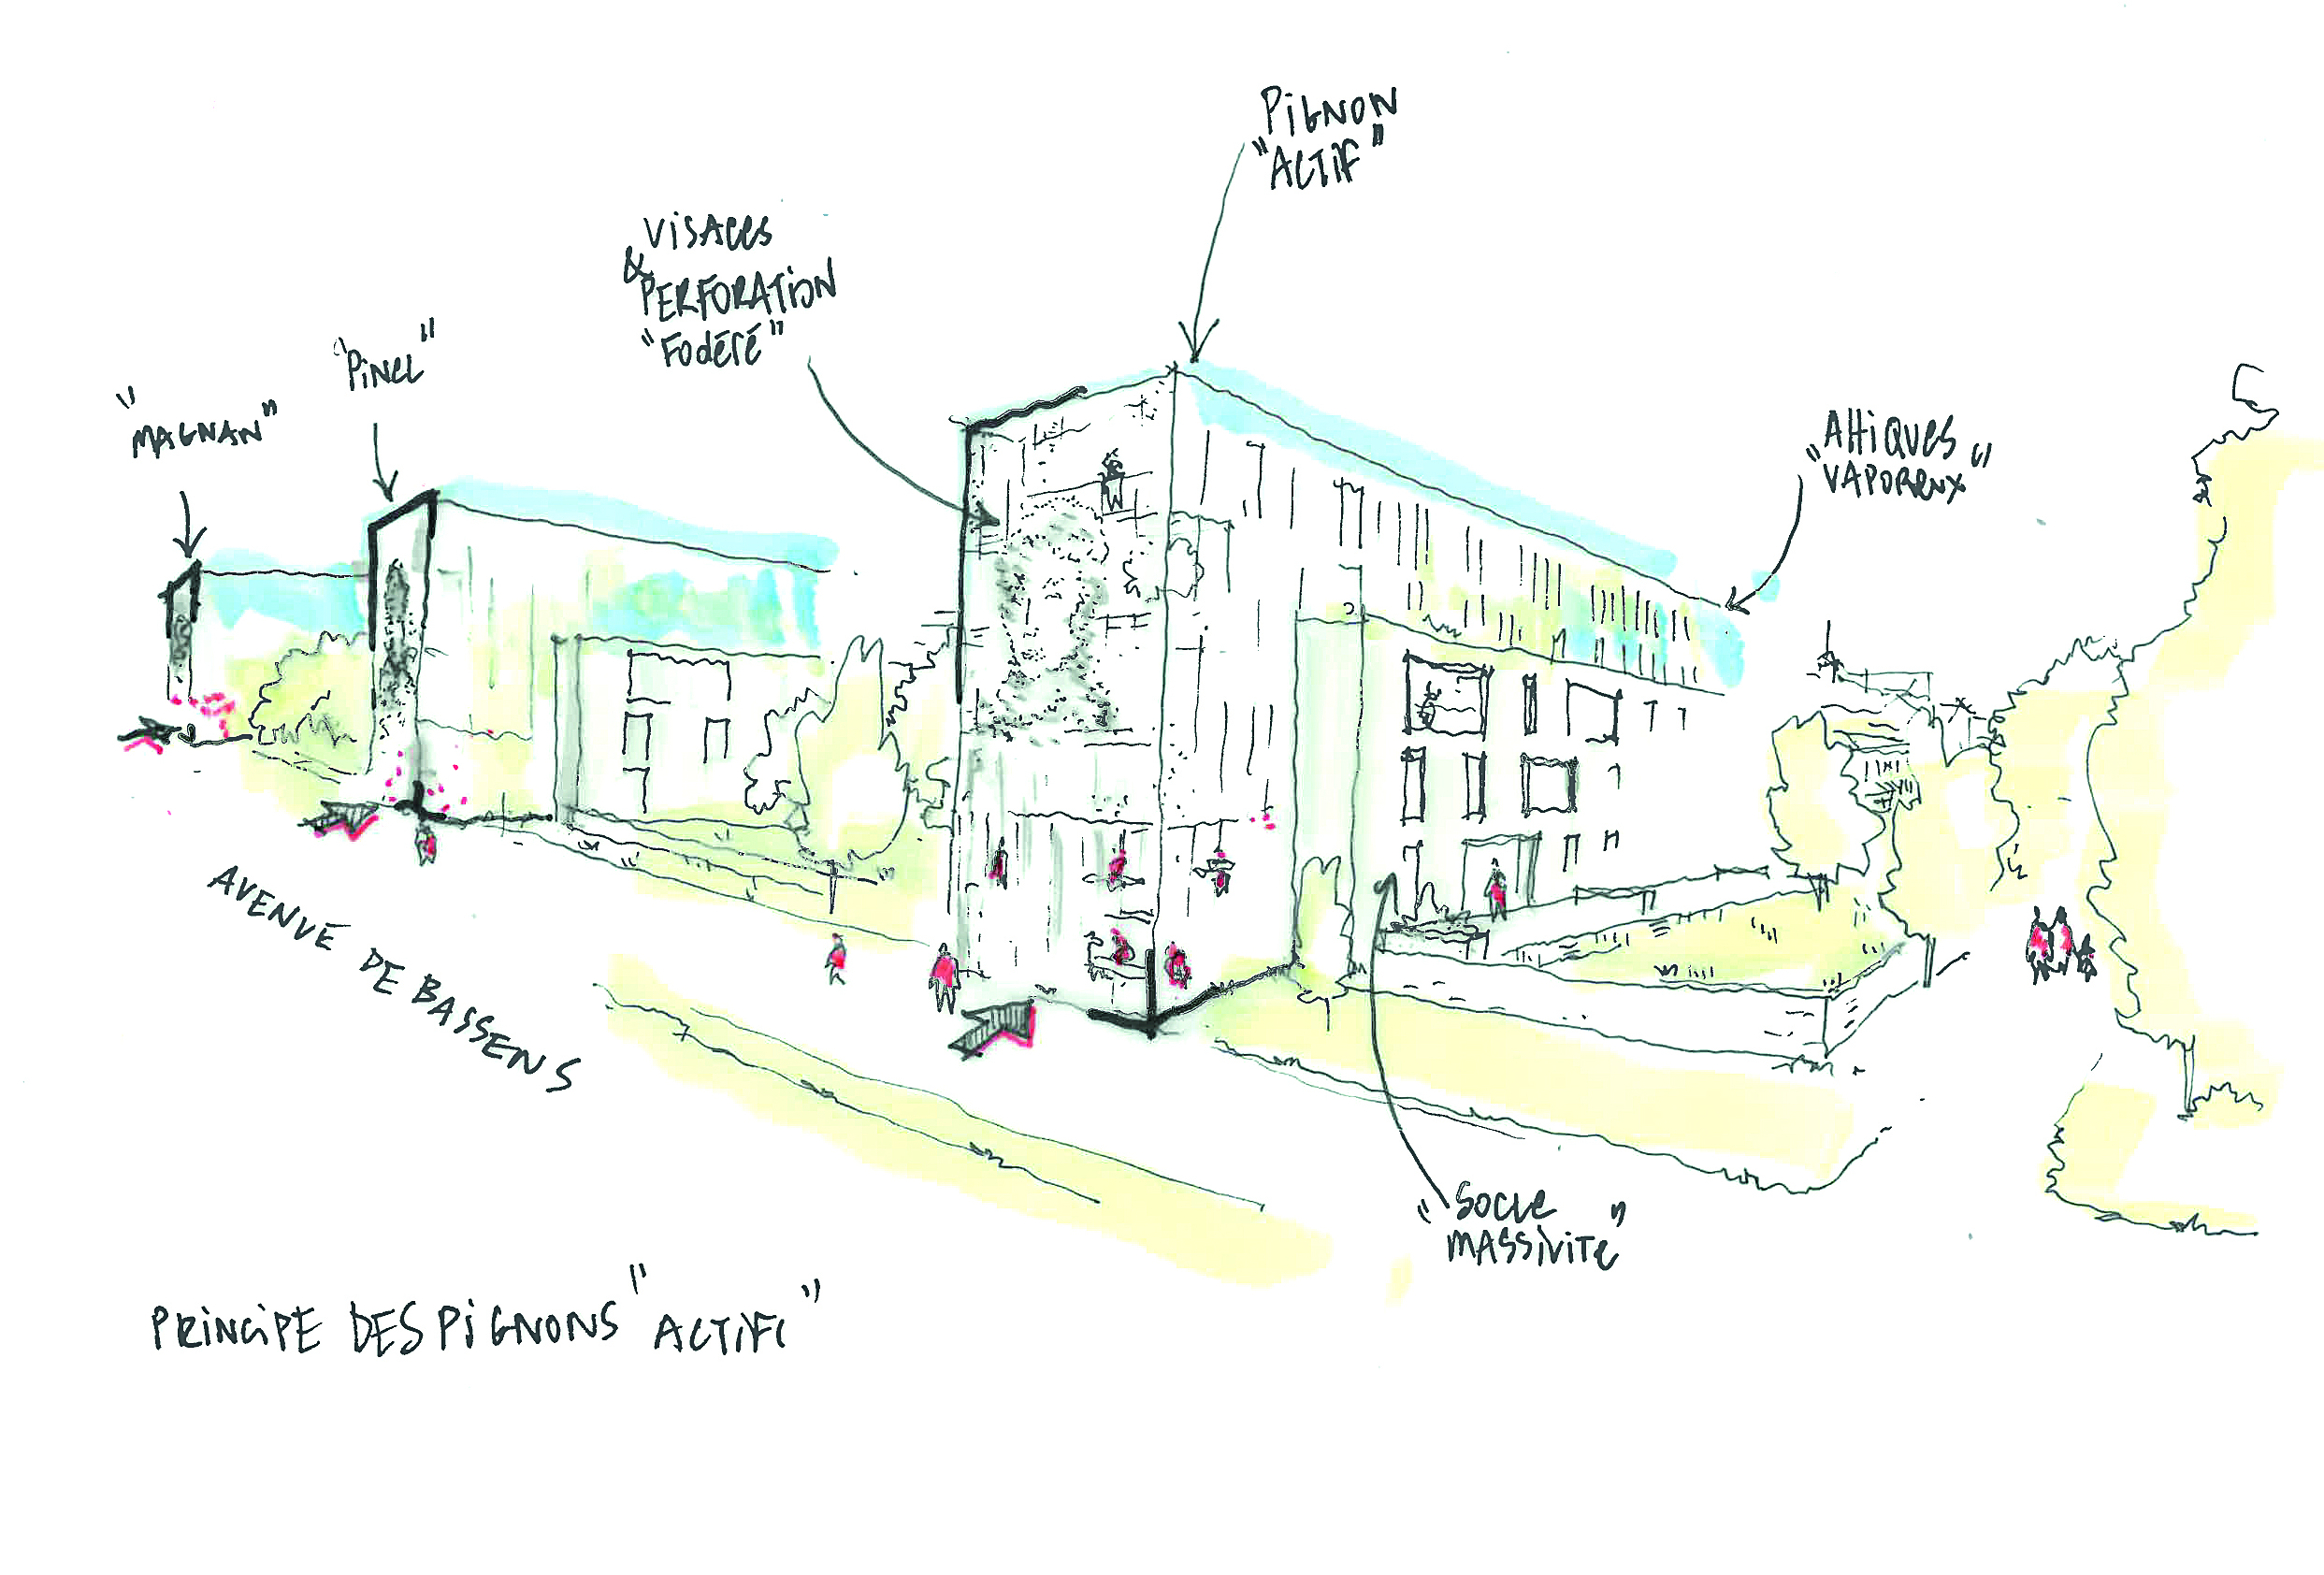 PIGNON
"ACTIF"
VISAGES
& PERFORATION
"FODÉRÉ"
"PINEL"
"MAGNAN"
"ATTIQUES
VAPOREUX"
AVENUE DE BASSENS
"SOCLE
MASSIVITE"
PRINCIPE DES PIGNONS "ACTIFS"